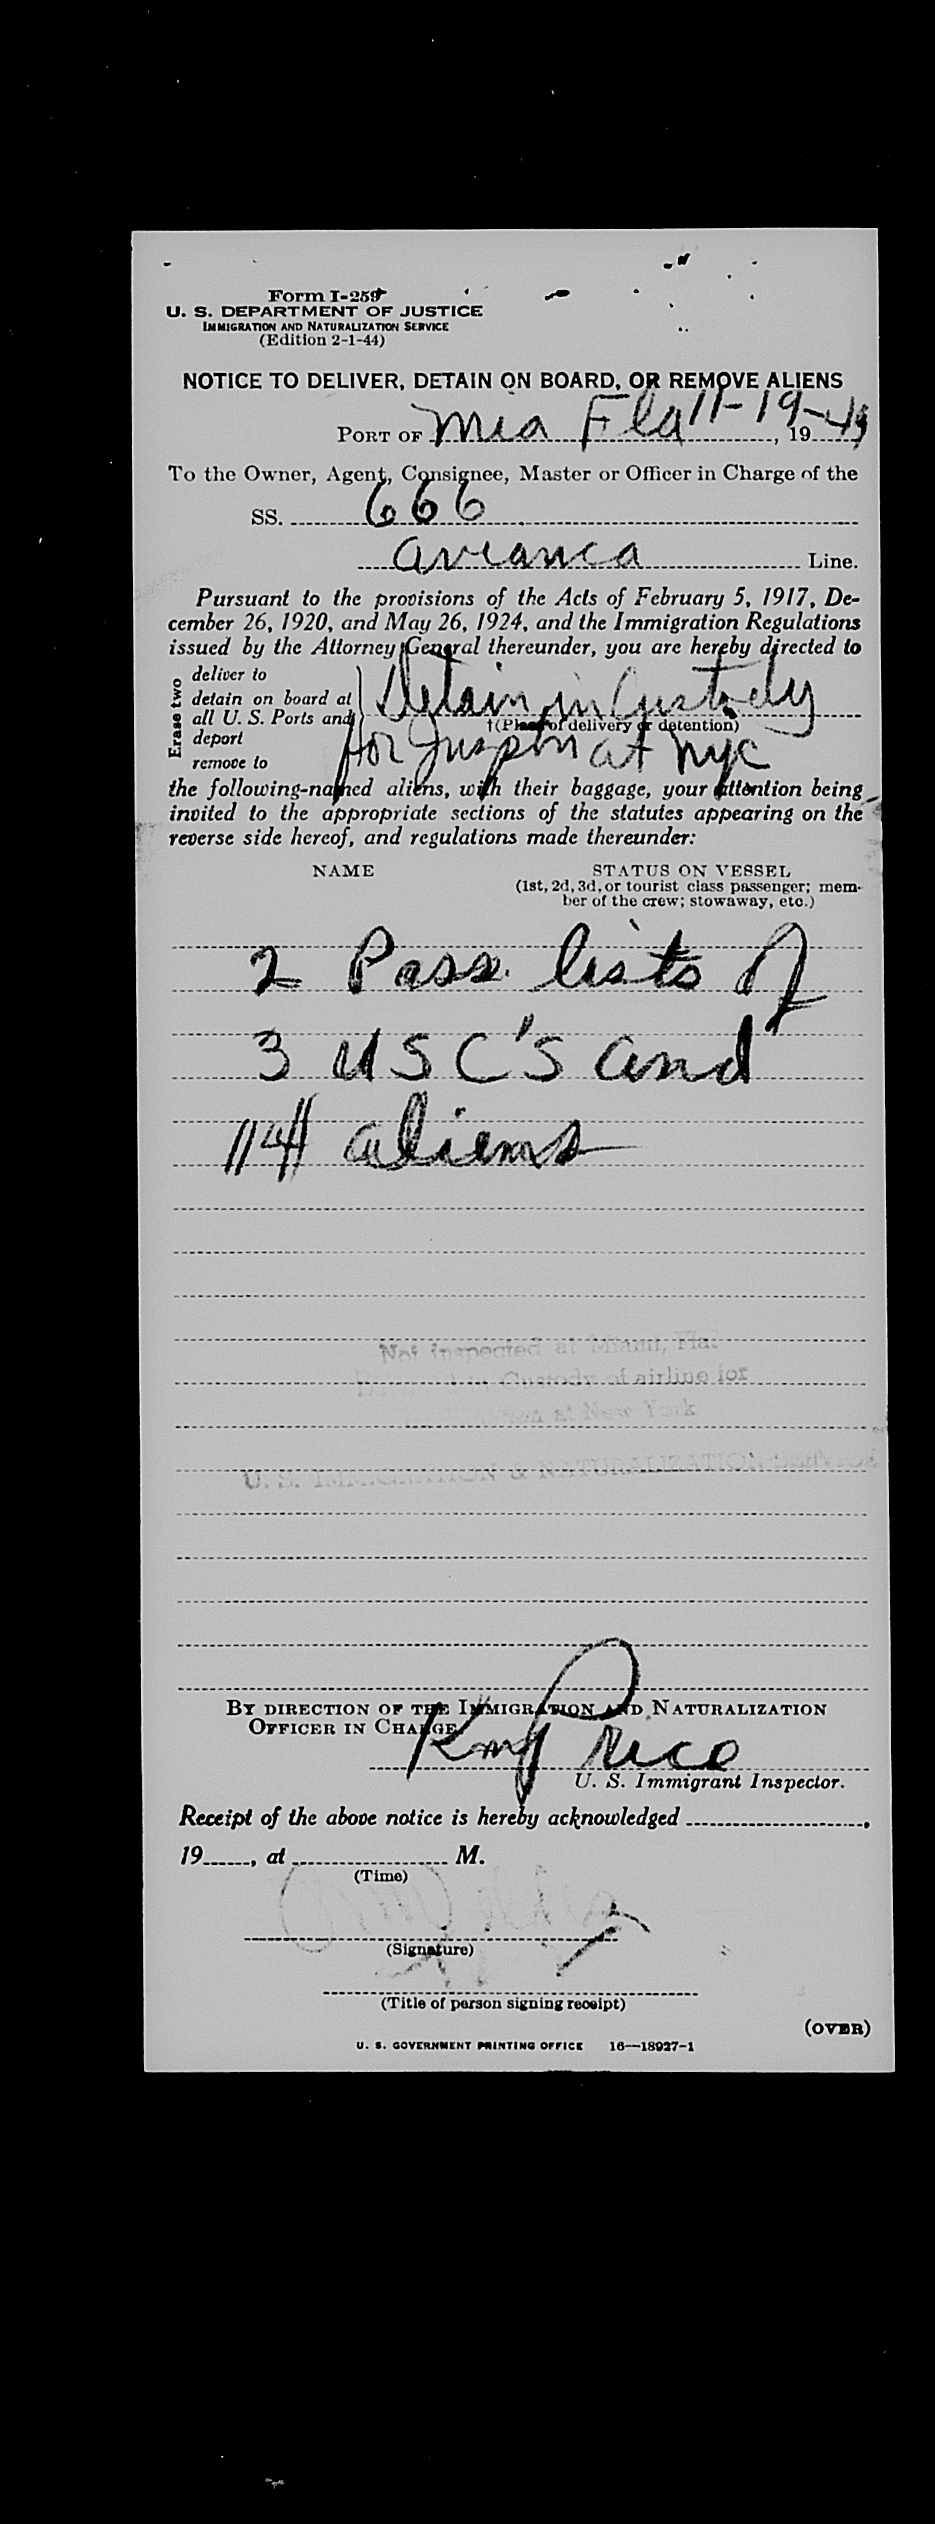 Form I-259
U. S. DEPARTMENT OF JUSTICE
IMMIGRATION AND NATURALIZATION SERVICE
(Edition 2-1-44)
NOTICE TO DELIVER, DETAIN ON BOARD, OR REMOVE ALIENS
PORT OF Mia Fla 11-19-, 19
To the Owner, Agent, Consignee, Master or Officer in Charge of the
SS. 666
Avianca Line.
Pursuant to the provisions of the Acts of February 5, 1917, De-
cember 26, 1920, and May 26, 1924, and the Immigration Regulations
issued by the Attorney General thereunder, you are hereby directed to
Erase two
deliver to
detain on board at
all U. S. Ports and
deport
remove to
Detain in Custody
†(Place of delivery or detention)
for Inspn at NYC
the following-named aliens, with their baggage, your attention being
invited to the appropriate sections of the statutes appearing on the
reverse side hereof, and regulations made thereunder:
NAME
STATUS ON VESSEL
(1st, 2d, 3d, or tourist class passenger; mem-
ber of the crew; stowaway, etc.)
2 Pass. lists of
3 USC'S and
114 aliens
Not inspected at Miami, Fla.
Custody of airline for
at New York
U. S. IMMIGRATION & NATURALIZATION SERVICE
BY DIRECTION OF THE IMMIGRATION AND NATURALIZATION
OFFICER IN CHARGE
Rice
U. S. Immigrant Inspector.
Receipt of the above notice is hereby acknowledged ,
19 , at M.
(Time)
(Signature)
(Title of person signing receipt)
(OVER)
U. S. GOVERNMENT PRINTING OFFICE 16—18927-1